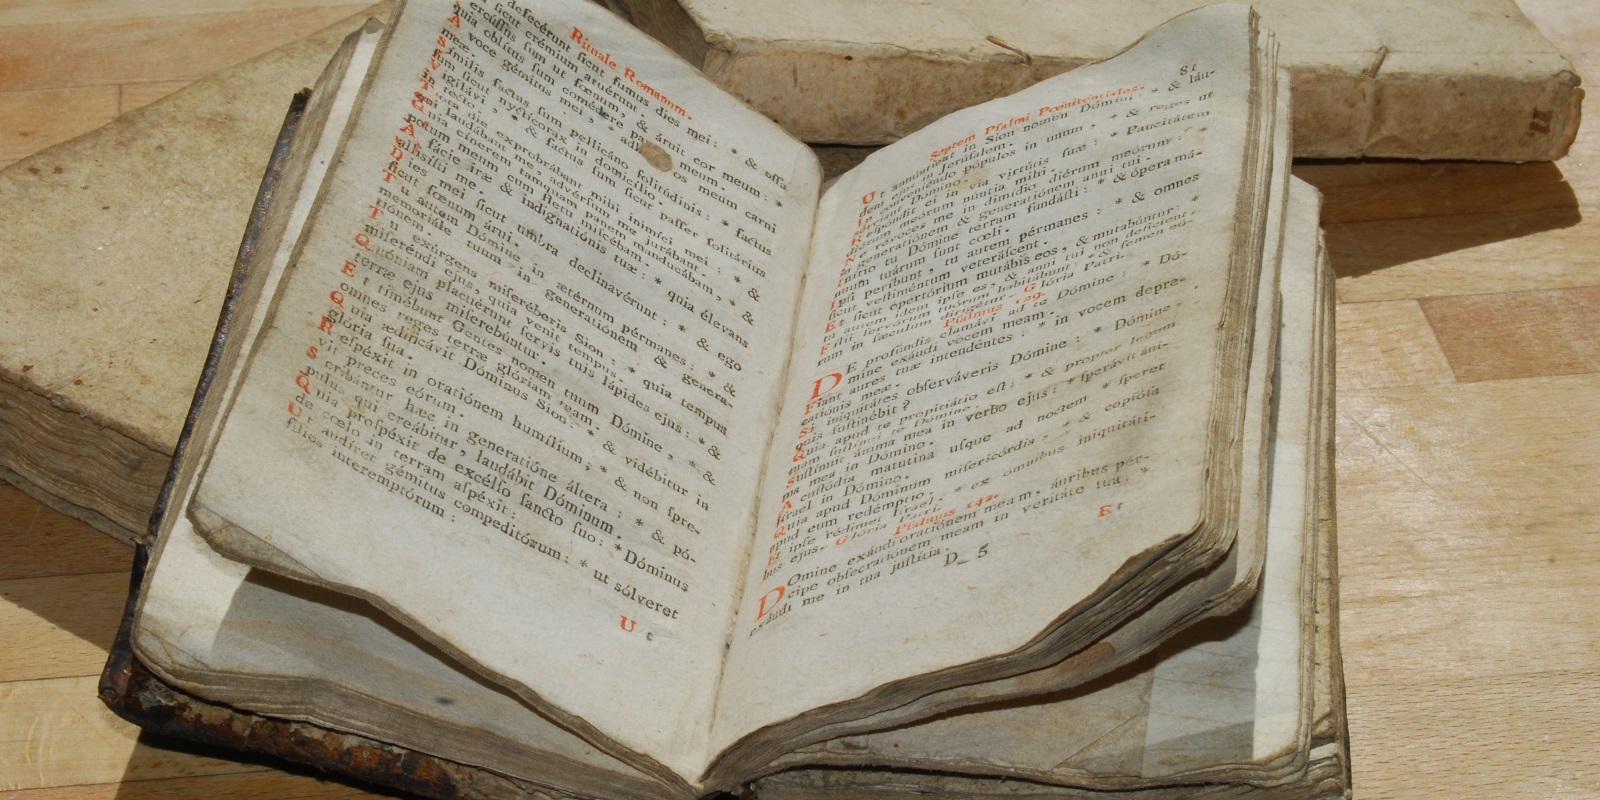 Rituale Romanum.
defecérunt ſicut fumus dies mei: * & oſſa
ſicut crémium aruérunt.
ut fœnum, & áruit cor meum: *
quia oblítus ſum comédere pa
voce gémitus mei, * adhæ os meum carni
meæ.
Símilis factus ſum pellicáno ſolitúdinis: * factus
ſum ſicut nyctícorax in domicílio.
igilávi, * & factus ſum ſicut paſſer ſolitárius
in tecto.
tota die exprobrábant mihi inimíci mei: * &
qui laudábant me, advérſum me jurábant.
Quia cínerem tamquam panem manducábam, * &
potum meum cum fletu miſcébam.
A fácie iræ & indignatiónis tuæ: * quia élevans
alliſíſti me.
Dies mei ſicut umbra declinavérunt: * & ego
ſicut fœnum árui.
Tu autem Dómine in ætérnum pérmanes: * &
memoriále tuum in generatiónem & genera-
tiónem.
Tu exúrgens miſeréberis Sion: * quia tempus
miſeréndi ejus, quia venit tempus.
Quóniam placuérunt ſervis tuis lápides ejus: * &
terræ ejus miſerebúntur.
Et timébunt Gentes nomen tuum Dómine, * &
omnes reges terræ glóriam tuam.
Quia ædificávit Dóminus Sion: * & vidébitur in
glória ſua.
Reſpéxit in oratiónem humílium; * & non ſpre-
vit preces eórum.
Scribántur hæc in generatióne áltera: * & pó-
pulus qui creábitur, laudábit Dóminum.
Quia proſpéxit de excélſo ſancto ſuo: * Dóminus
de cœlo in terram aſpéxit:
Ut audíret gémitus compeditórum: * ut sólveret
fílios interemptórum:
Ut
Septem Pſalmi Pœnitentiales. 81
Ut annúntient in Sion nomen Dómini: * & láu-
dem in Jerúſalem.
conveniéndo pópulos in unum, * & reges ut
Dómino.
Reſpóndit ei in via virtútis ſuæ: * Paucitátem
diérum meórum núntia mihi.
Ne révoces me in dimídio diérum meórum: *
in generatiónem & generatiónem anni tui.
Inítio tu Dómine terram fundáſti: * & ópera má-
nuum tuárum ſunt cœli.
Ipſi períbunt, tu autem pérmanes: * & omnes
ſicut veſtiméntum veteráſcent.
Et ſicut opertórium mutábis eos, & mutabúntur: *
tu autem idem ipſe es, & anni tui non defícient.
Fílii ſervórum tuórum habitábunt: * & ſemen eó-
rum in ſæculum dirigétur. Glória Patri.
Pſalmus 129.
DE profúndis clamávi ad te Dómine: * Dó-
mine exáudi vocem meam.
Fiant aures tuæ intendéntes: * in vocem depre-
catiónis meæ.
Si iniquitátes obſerváveris Dómine: * Dómine
quis ſuſtinébit?
Quia apud te propitiátio eſt: * & propter legem
tuam ſuſtínui te Dómine.
Suſtínuit ánima mea in verbo ejus: * ſperávit áni-
ma mea in Dómino.
A cuſtódia matutína uſque ad noctem * ſperet
Iſrael in Dómino.
Quia apud Dóminum miſericórdia, * & copióſa
apud eum redémptio.
Et ipſe rédimet Iſrael, * ex ómnibus iniquitáti-
bus ejus. Glória Patri.
Pſalmus 142.
DOmine exáudi oratiónem meam, áuribus pér-
cipe obſecratiónem meam in veritáte tua: *
exáudi me in tua juſtítia.
D 5 Et